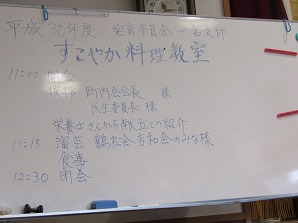 平成30年度 食育委員会一宮支部
すこやか料理教室
11:00 開会
挨拶 町内会会長 様
民生委員長 様
栄養士さんから献立ての紹介
11:15 演芸 鶴松会 吉和会のみな様
食事
12:30 閉会